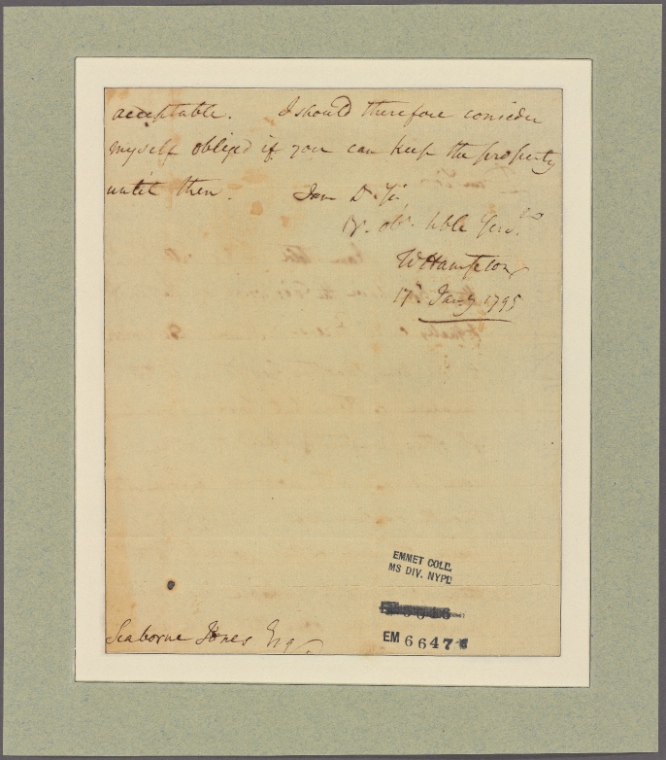 acceptable. I should therefore consider
myself obliged if you can keep the property
until then. I am Dr Sir,
Yr. obt. hble Servt
W Hampton
17 Jany 1795
EMMET COLL.
MS DIV. NYPL
EM 6647
Seaborne Jones Esqr